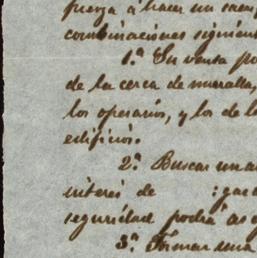 fuerza á hacer un
combinaciones
1.ª Su venta
de la cerca de muralla,
los operarios, y los de
edificios.
2.ª Buscar un
interés de
seguridad podrá
3.ª Formar una